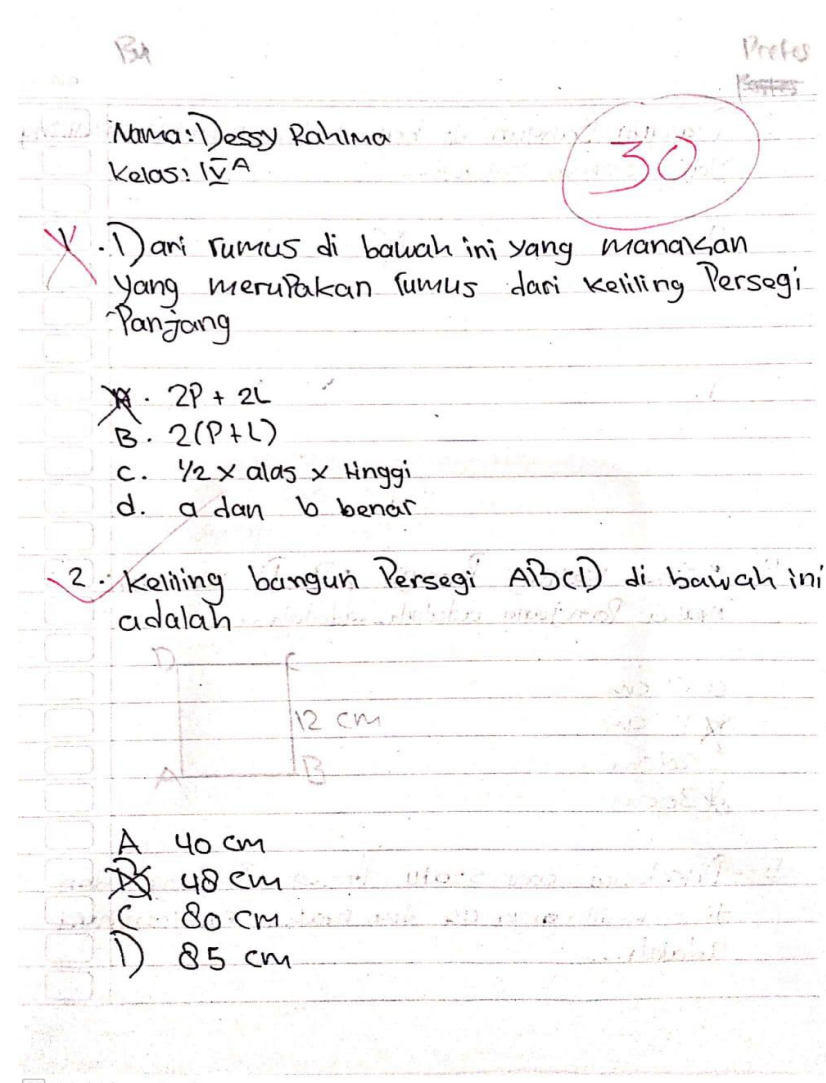 B4
Pretes
Nama: Dessy Rahima
Kelas: IV A
30
1. Dari rumus di bawah ini yang manakan
yang merupakan rumus dari keliling Persegi
Panjang
A. 2P + 2L
B. 2(P+L)
C. 1/2 x alas x tinggi
d. a dan b benar
2. Keliling bangun Persegi ABCD di bawah ini
adalah
D C
12 cm
A B
A 40 cm
B 48 cm
C 80 cm
D 85 cm